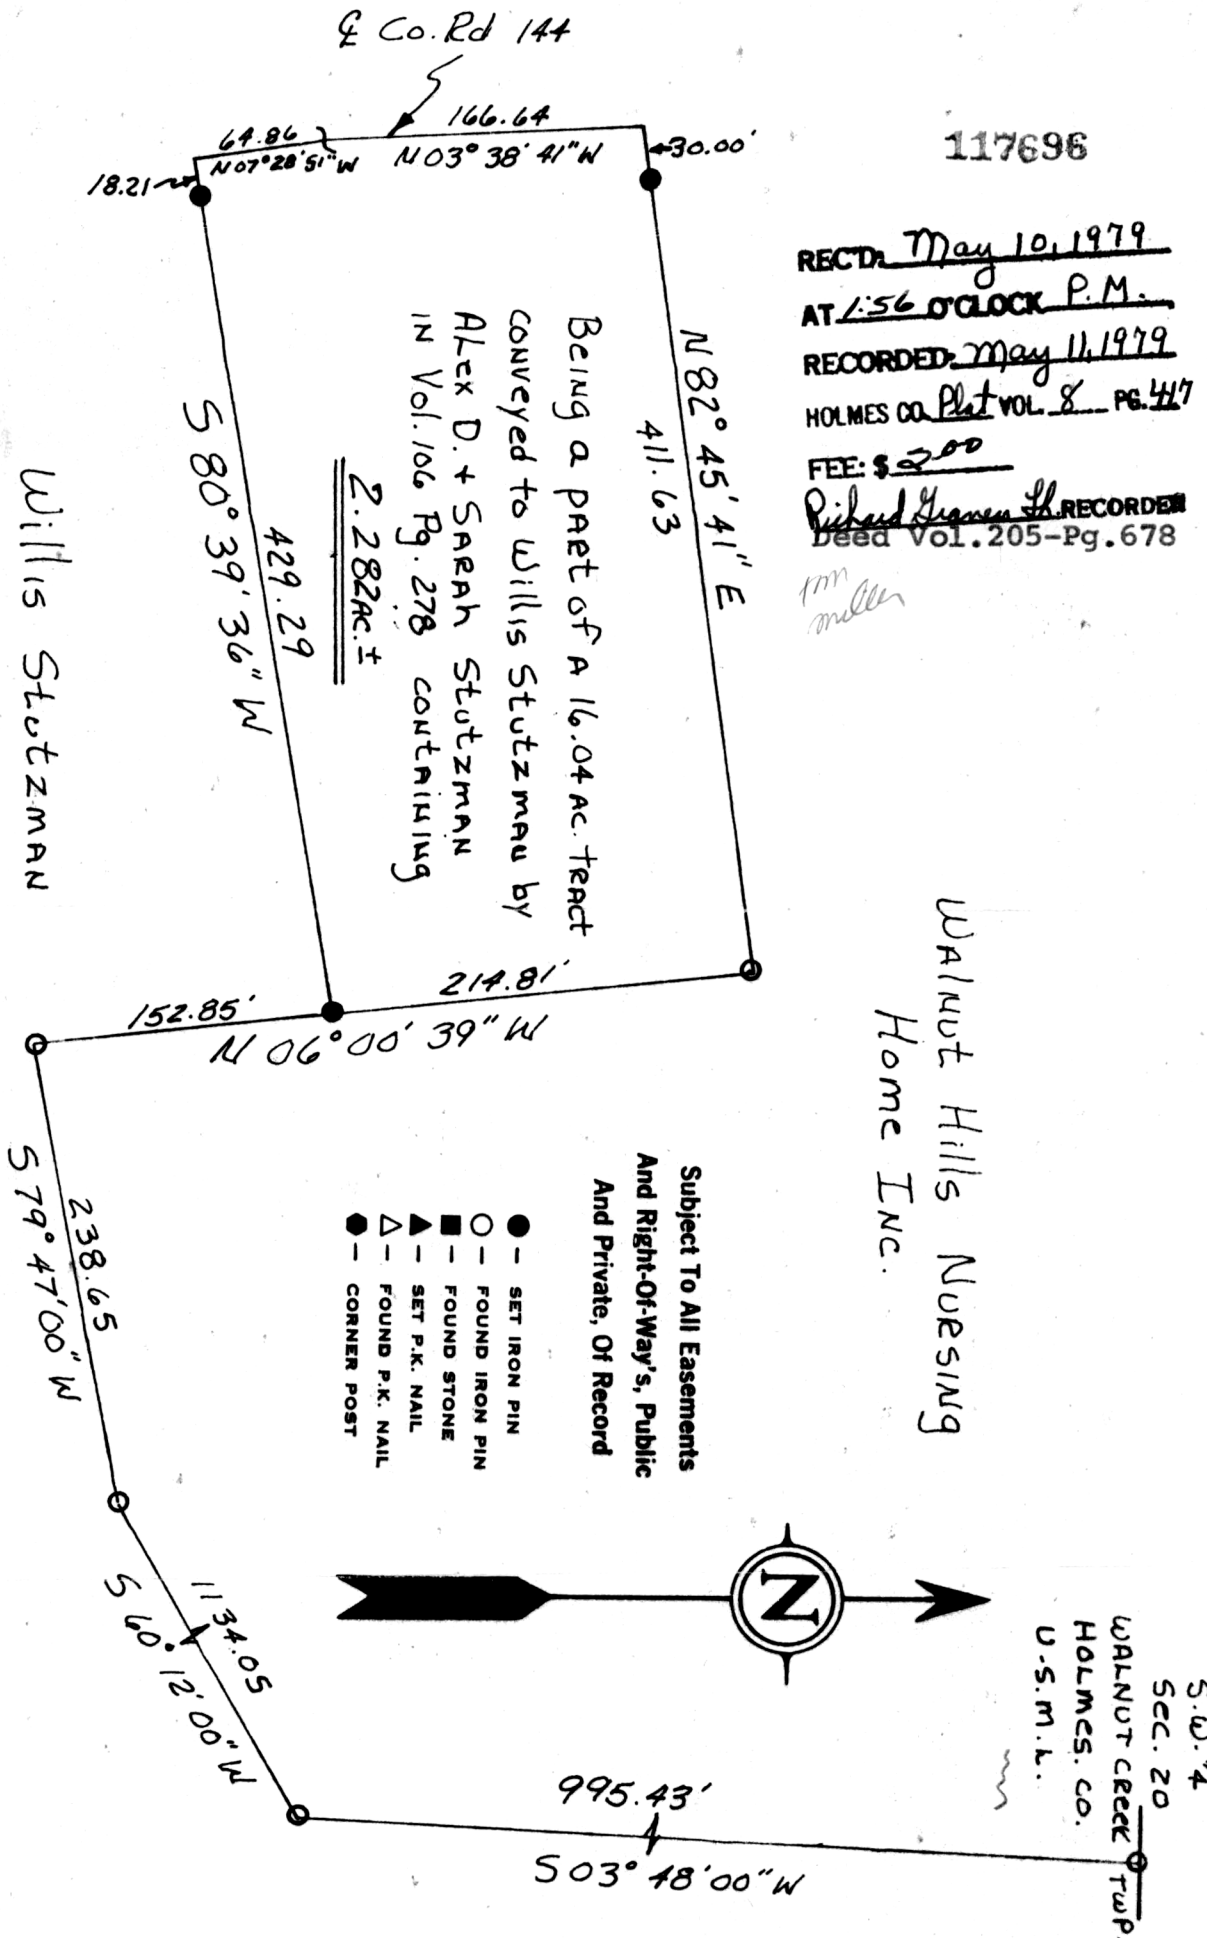 ℄ Co. Rd 144
166.64
64.86
N 03° 38' 41" W
N 07° 28' 51" W
30.00'
18.21
117696
REC'D: May 10, 1979
AT 1:56 O'CLOCK P.M.
RECORDED: May 11, 1979
HOLMES CO. Plat VOL. 8 PG. 417
FEE: $ 2.00
Richard RECORDER
Deed Vol.205-Pg.678
miller
N 82° 45' 41" E
411.63
Being a part of A 16.04 Ac. tract
conveyed to Willis Stutzman by
Alex D. + Sarah Stutzman
in Vol. 106 Pg. 278 containing
2.282 Ac. ±
429.29
S 80° 39' 36" W
Willis Stutzman
Walnut Hills Nursing
Home Inc.
214.81'
152.85'
N 06° 00' 39" W
Subject To All Easements
And Right-Of-Way's, Public
And Private, Of Record
● – SET IRON PIN
○ – FOUND IRON PIN
■ – FOUND STONE
▲ – SET P.K. NAIL
△ – FOUND P.K. NAIL
⬢ – CORNER POST
238.65
S 79° 47' 00" W
1134.05
S 60° 12' 00" W
N
995.43'
S 03° 48' 00" W
S.W. 1/4
Sec. 20
WALNUT CREEK TWP.
HOLMES. CO.
U.S.M.L.